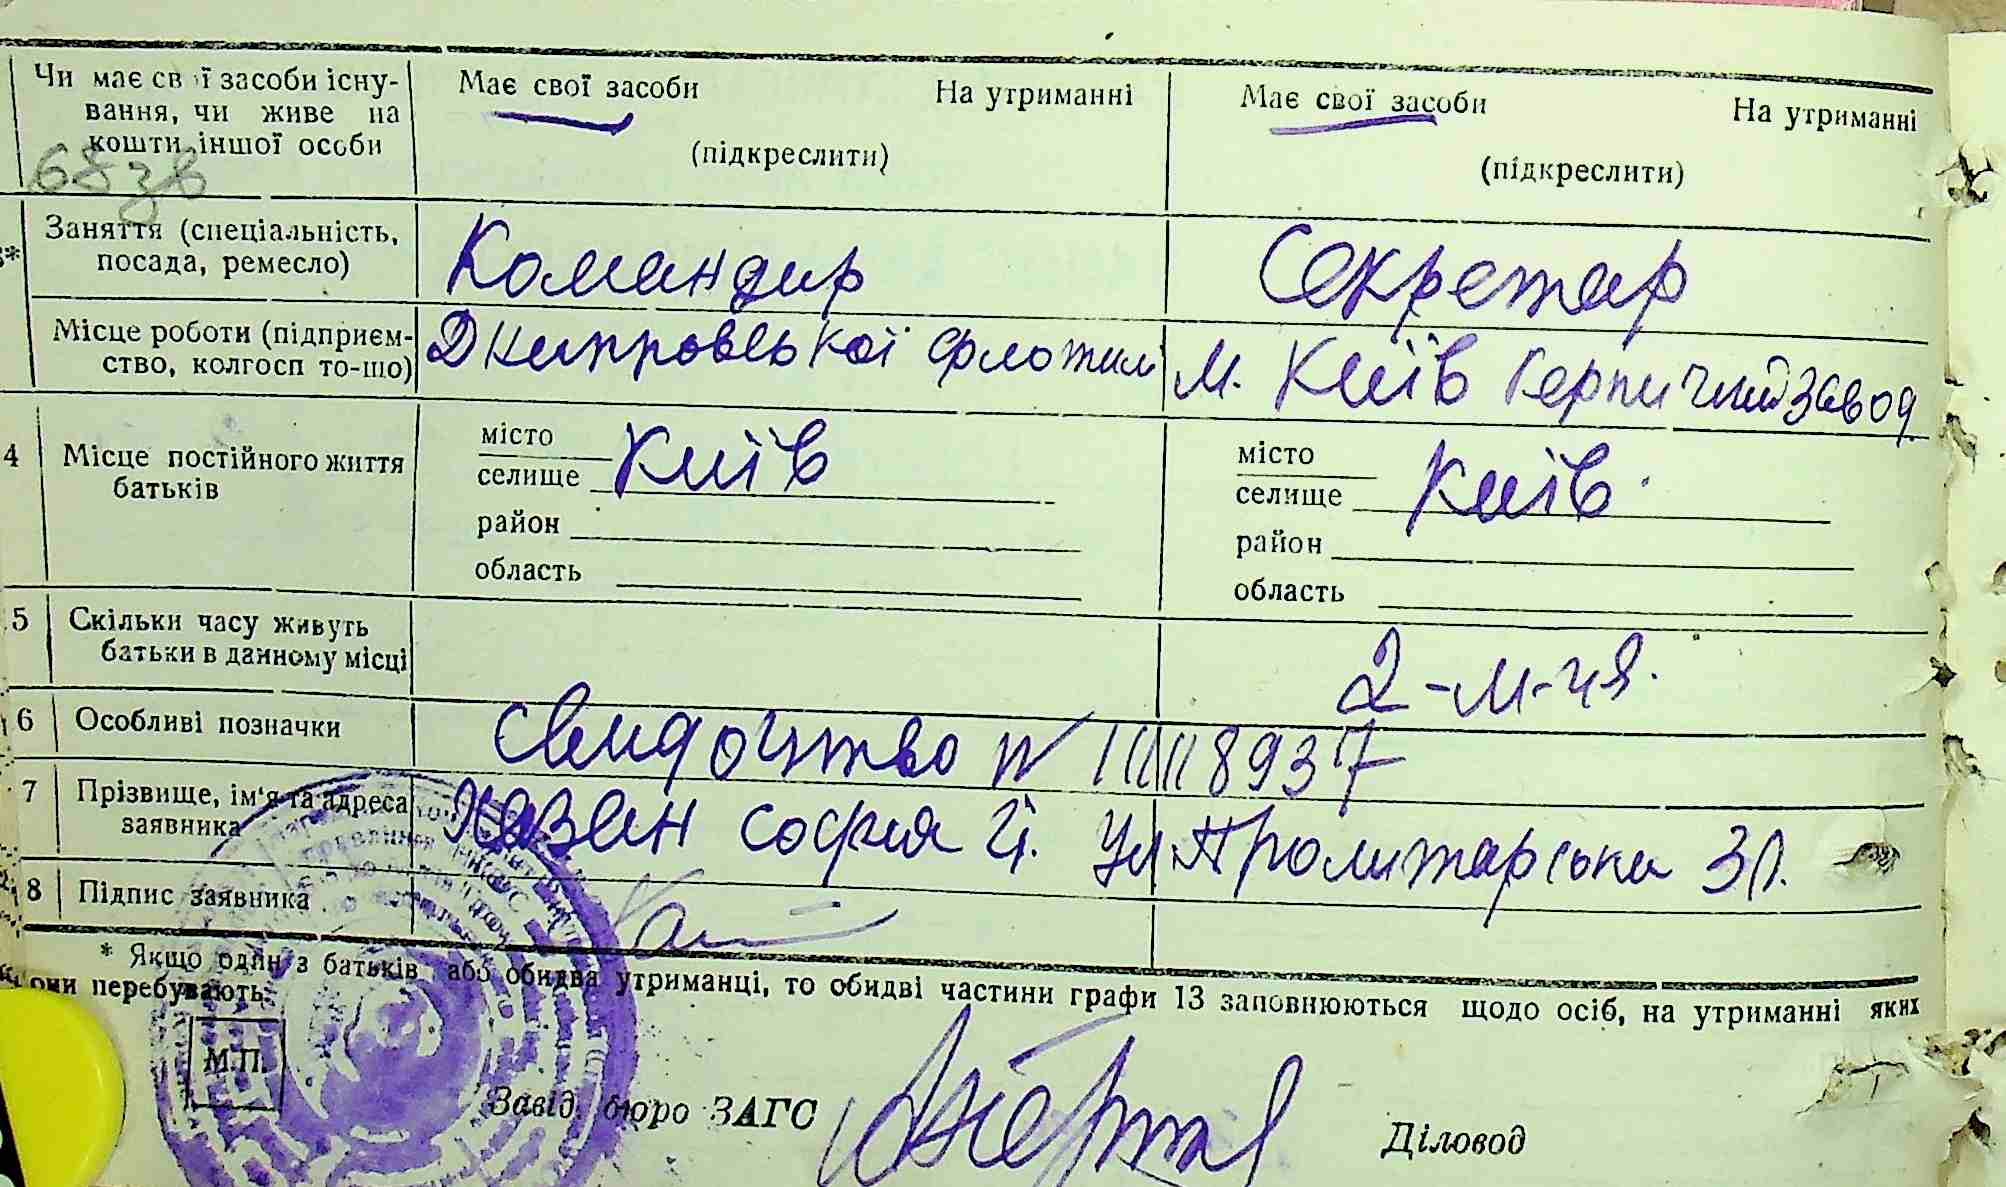 Чи має свої засоби існу- Має свої засоби На утриманні Має свої засоби На утриманні
вання, чи живе на
кошти іншої особи (підкреслити) (підкреслити)
68 зв
Заняття (спеціальність, Командир Секретар
посада, ремесло)
Місце роботи (підприєм- Дніпровської флотилі м. Київ Керпичний завод
ство, колгосп то-що)
4 Місце постійного життя місто Київ місто Київ
батьків селище селище
район район
область область
5 Скільки часу живуть 2-м-ця.
батьки в данному місці
6 Особливі позначки Свидоцтво N 111118937
7 Прізвище, ім'я та адреса Казан Софія Й. ул. Пролитарська 31.
заявника
8 Підпис заявника
* Якщо один з батьків або обидва утриманці, то обидві частини графи 13 заповнюються щодо осіб, на утриманні яких
они перебувають.
М.П.
Завід. бюро ЗАГС Діловод